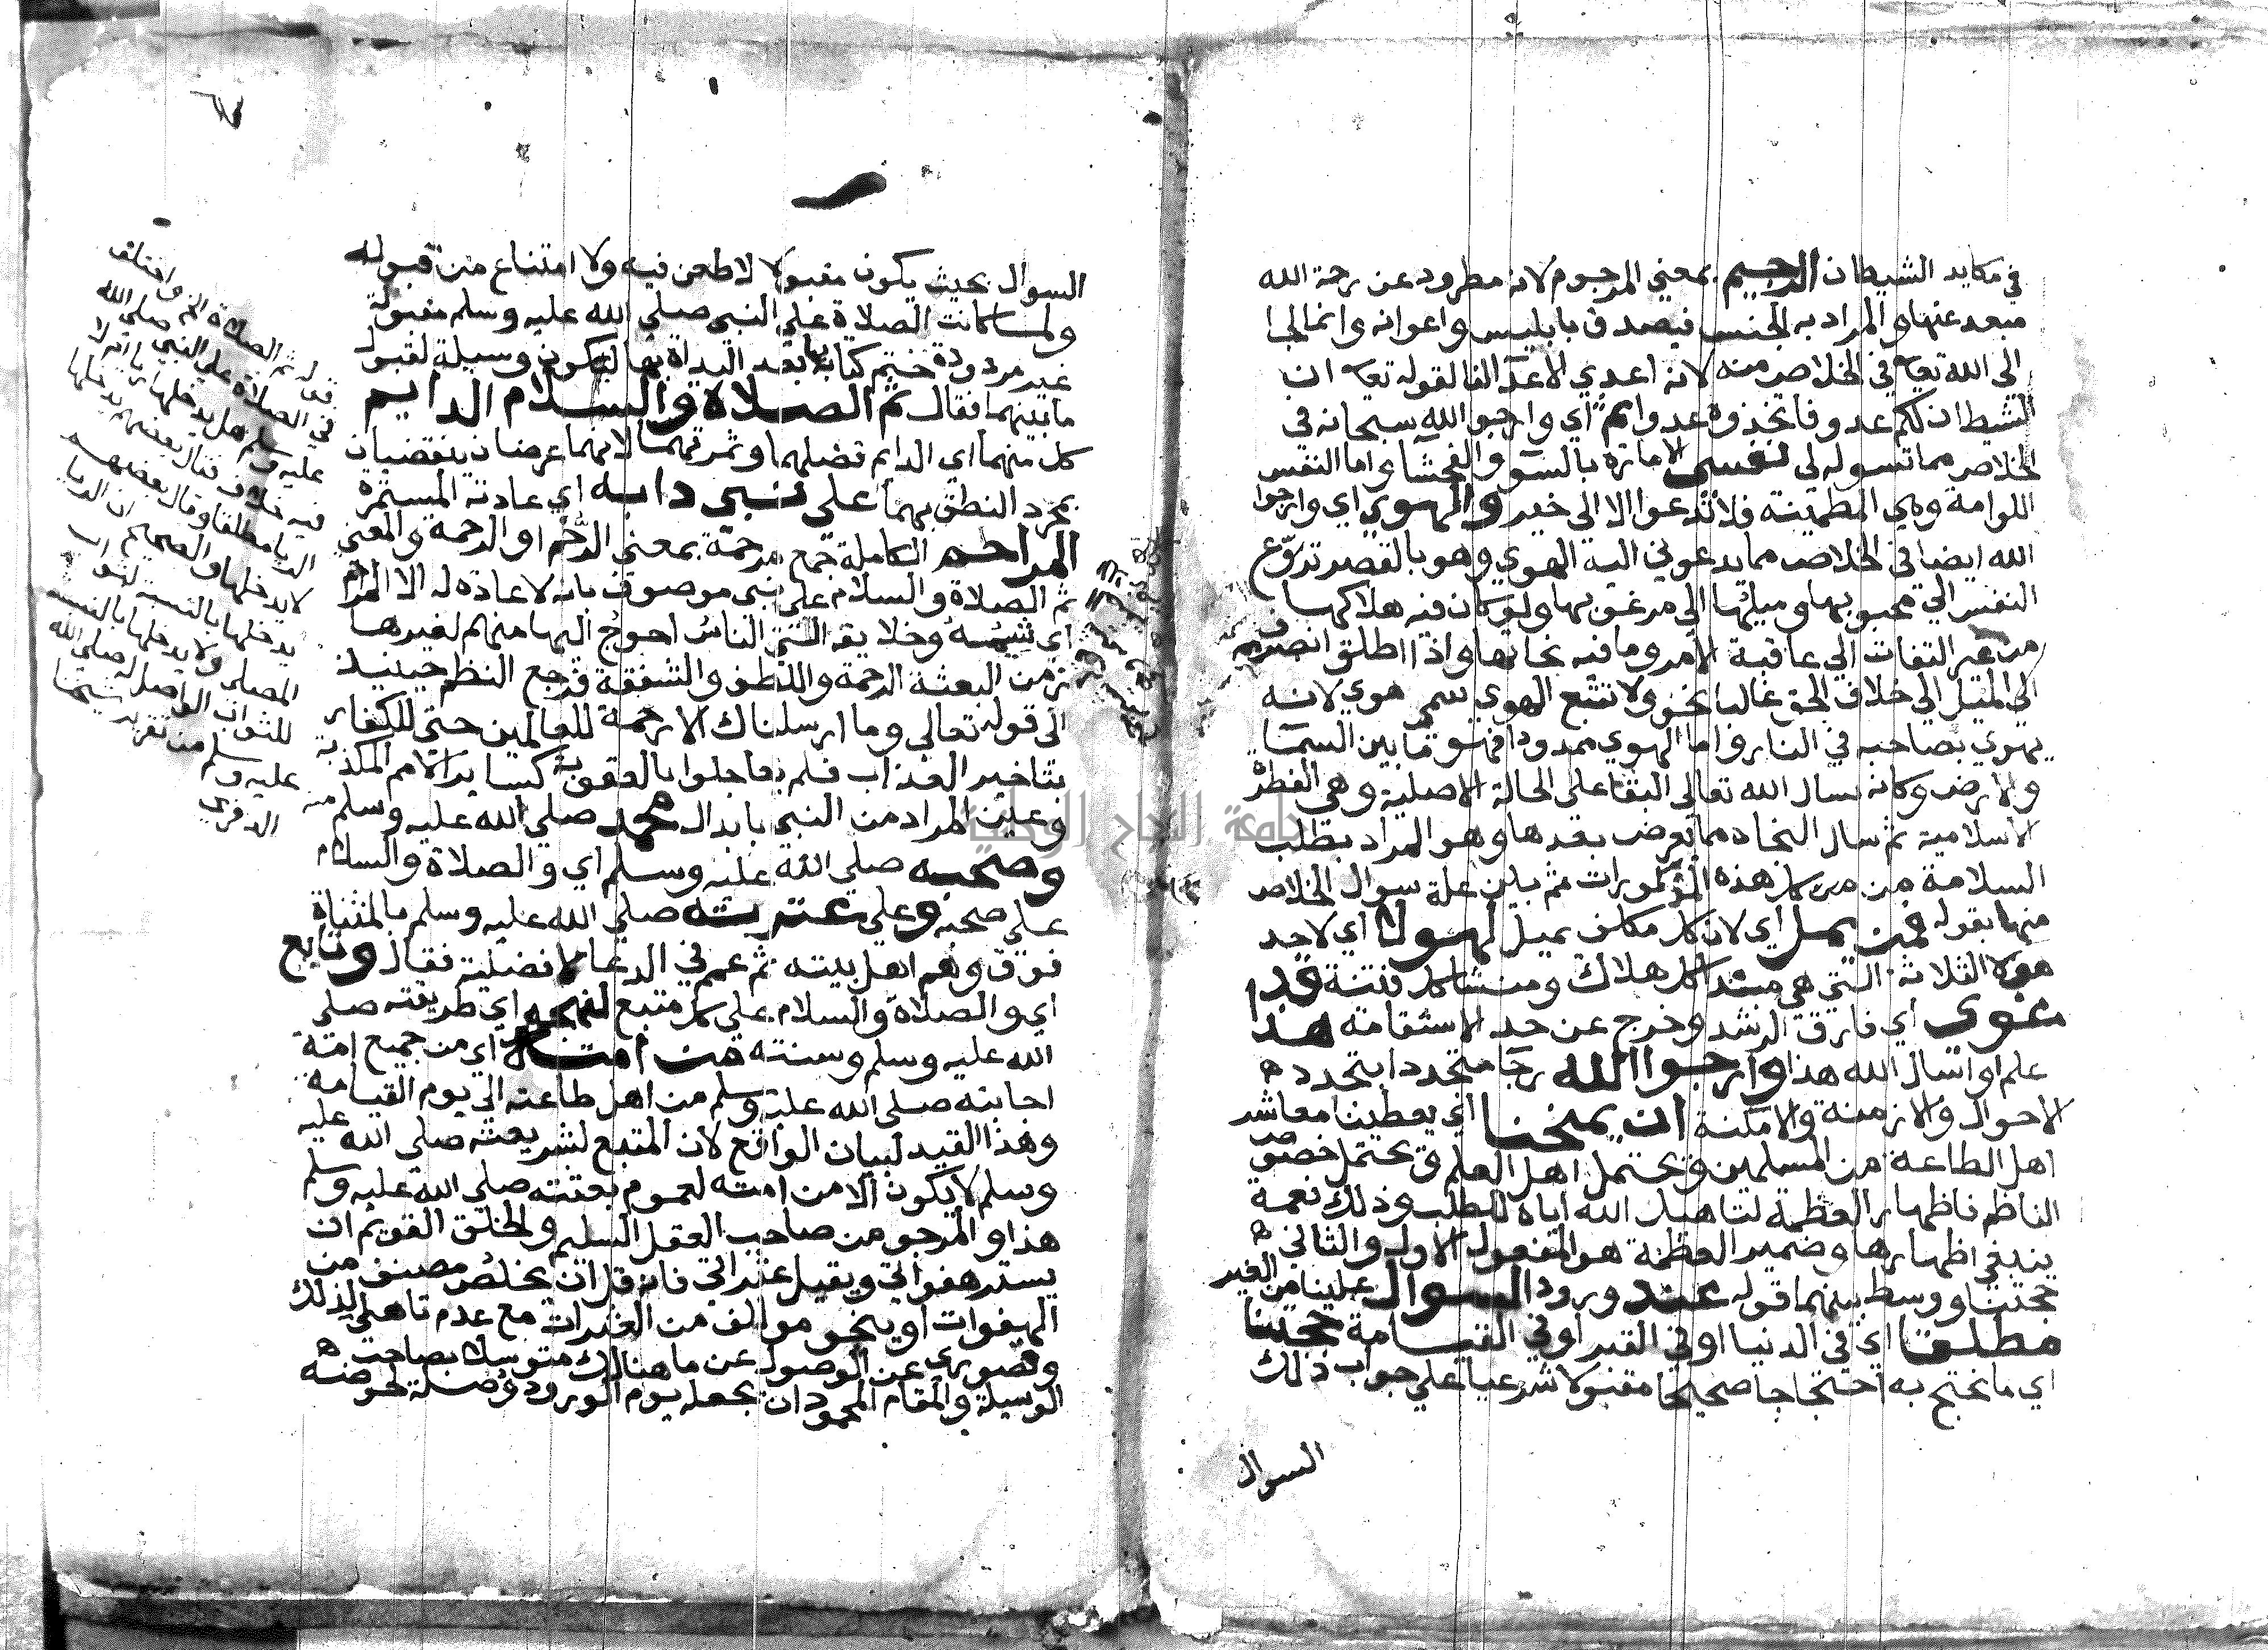 في مكايد الشيطان الرجيم بمعني المرجوم لانه مطرود عن رحمة الله
مبعد عنها والمراد به الجنس فيصدق بابليس واعوانه وانما لجا
الي الله تعا في الخلاص منه لانه اعدي الاعدآ لنا لقوله تعا ان
الشيطان لكم عدو فاتخذوه عدوا ثم اي وارجو الله سبحانه في
الخلاص مما تسوله لي نفسي الامارة بالسوء والفحشا واما النفس
اللوامة وهي المطمينة فلا تدعوا الا الي خير والهوي اي وارجوا
الله ايضا في الخلاص مما يدعوني اليه الهوي وهو بالقصر تروع
النفس الي محبوبها وميلها الي مرغوبها ولو كان فيه هلاكها
من غير التفات الي عاقبة الامر وما فيه نجاتها واذا اطلق انصرف
الي الميل الي خلاف الحق غالبا نحو ولا تتبع الهوي سمي هوي لانه
يهوي بصاحبه في النار واما الهوي ممدودا فهو ما بين السمآ
والارض وكانه سال الله تعالي البقا علي الحالة الاصلية وهي الفطرة
الاسلامية ثم سال النجاة مما يعرض بعدها وهو المراد بطلب
السلامة من كل هذه المذكورات ثم بين علة سوال الخلاص
منها بقوله فمن يمل اي لان كل مكلف يميل لهولا اي لاحد
هولا الثلاثة التي هي مبتدا كل هلاك ومنشا كل فتنة قد
غوي اي فارق الرشد وخرج عن حد الاستقامة هذا
علم او اسال الله هذا وارجوا الله رجآ متجددا بتجدد
الاحوال والازمنة والامكنة ان يمنحنا اي يعطينا معاشر
اهل الطاعة من المسلمين ويحتمل اهل العلم ويحتمل خصوص
الناظم فاظهار العظمة لتاهيل الله اياه للطلب وذلك نعمة
ينبغي اظهارها وضمير العظمة هو المفعول الاول والثاني
حجتنا ووسط بينهما قوله عند ورود السوال علينا من الغير
مطلقا اي في الدنيا او في القبر او في القيامة حجتنا
اي ما نحتج به احتجاجا صحيحا مقبولا شرعيا علي جواب ذلك
السوال
السوال بحيث يكون مقبولا لا طعن فيه ولا امتناع من قبوله
ولما كانت الصلاة علي النبي صلي الله عليه وسلم مقبولة
غير مردودة ختم كتابه بها بعد البداة بها ليكون وسيلة لقبول
ما بينهما فقال ثم الصلاة والسلام الدايم
كل منهما اي الدايم فضلهما وثمرتهما لانهما عرضان ينقضيان
بمجرد النطق بهما علي نبي دابه اي عادته المستمرة
المراحم الكاملة جمع مرحمة بمعني الرحم او الرحمة والمعني
ثم الصلاة والسلام علي نبي موصوف بانه لا عادة له الا المراحم
اي شيمه وخلايقه التي الناس احوج اليها منهم لغيرها
زمن البعثة الرحمة واللطف والشفقة فرجع النظم حينيذ
الي قوله تعالي وما ارسلناك الا رحمة للعالمين حتي للكفار
بتاخير العذاب فلم يعاجلوا بالعقوبة كساير الامم المكذبة
وعين المراد من النبي بابدال محمد صلي الله عليه وسلم منه
وصحبه صلي الله عليه وسلم اي والصلاة والسلام
علي صحبه وعلي عترته صلي الله عليه وسلم بالمثناة
فوق وهم اهل بيته ثم عمم في الدعا لافضليته فقال وتابع
اي والصلاة والسلام علي كل متبع لنهجه اي طريقته صلي
الله عليه وسلم وسنته من امته اي من جميع امة
اجابته صلي الله عليه وسلم من اهل طاعته الي يوم القيامة
وهذا القيد لبيان الواقع لان المتبع لشريعته صلي الله عليه
وسلم لا يكون الا من امته لعموم بعثته صلي الله عليه وسلم
هذا والمرجو من صاحب العقل السليم والخلق القويم ان
يستر هفواتي ويقيل عثراتي فانه قل ان يخلص مصنف من
الهفوات او ينجو مولف من العثرات مع عدم تاهلي لذلك
وقصوري عن الوصول عن ما هنالك متوسلا بصاحب
الوسيلة والمقام المحمود ان يجعله يوم الورود وصلة لحوضه
قوله ثم الصلاة الخ واختلف
في الصلاة علي النبي صلي الله
عليه وسلم هل يدخلها ريا ام لا
فيه خلاف فقال بعضهم يدخلها
الريا مطلقا وقال بعضهم
لا يدخلها والصحيح ان الريا
يدخلها بالنسبة لثواب
المصلي ولا يدخلها بالنسبة
للثواب الواصل له صلي الله
عليه وسلم من تقرير شيخنا
الدفري
جامعة النجاح الوطنية